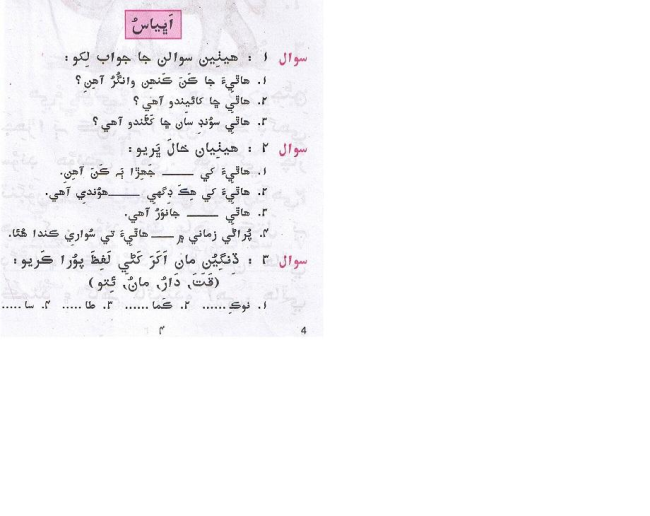 اَڀياسُ
سوال ١ : هيٺين سوالن جا جواب لکو :
١. هاٿيءَ جا ڪَنَ ڪَنهن وانگُرُ آهِن؟
٢. هاٿي ڇا کائيندو آهي؟
٣. هاٿي سُونڊِ سان ڇا ڪَڻندو آهي؟
سوال ٢ : هيٺيان خالَ ڀَريو :
١. هاٿيءَ کي ____ جَهِڙا ٻَہ ڪَنَ آهِن.
٢. هاٿيءَ کي هِڪَ ڊِگهي ____هوُندي آهي.
٣. هاٿي ____ جانوَرُ آهي.
۴. پُراڻي زماني ۾ ____هاٿيءَ تي سُواري ڪندا هُئا.
سوال ٣ : ڏنگيُن مان اَکَرَ کَڻي لَفِظَ پوُرا ڪَريو :
(قَتَ، دَارُ، مانُ، ئِتو)
١. نوڪِ...... ٢. ڪَما...... ٣. طا..... ۴. سا.....
۴
4